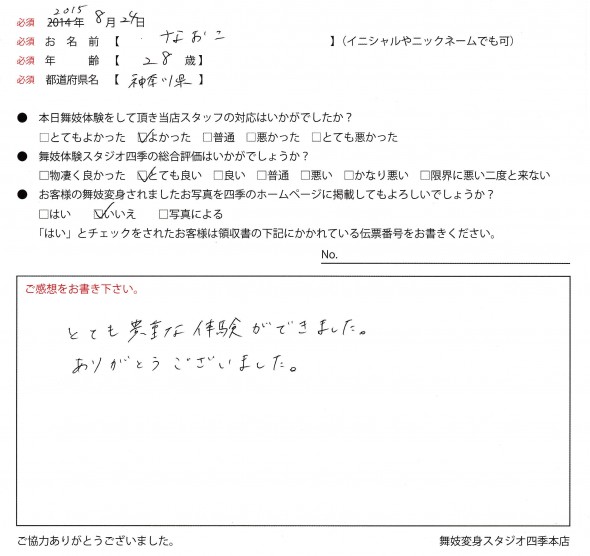 2015
必須 2014年 8月 24日
必須 お名前【 なおこ 】（イニシャルやニックネームでも可）
必須 年齢【 28歳】
必須 都道府県名【 神奈川県 】
● 本日舞妓体験をして頂き当店スタッフの対応はいかがでしたか？
□とてもよかった ☑よかった □普通 □悪かった □とても悪かった
● 舞妓体験スタジオ四季の総合評価はいかがでしょうか？
□物凄く良かった ☑とても良い □良い □普通 □悪い □かなり悪い □限界に悪い二度と来ない
● お客様の舞妓変身されましたお写真を四季のホームページに掲載してもよろしいでしょうか？
□はい ☑いいえ □写真による
「はい」とチェックをされたお客様は領収書の下記にかかれている伝票番号をお書きください。
No.
ご感想をお書き下さい。
とても貴重な体験ができました。
ありがとうございました。
ご協力ありがとうございました。 舞妓変身スタジオ四季本店